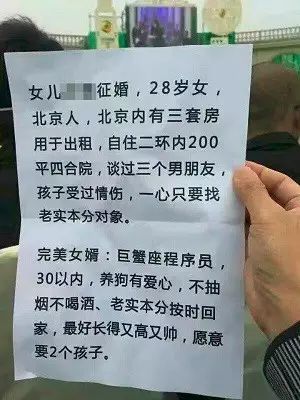 女儿征婚，28岁女，
北京人，北京内有三套房
用于出租，自住二环内200
平四合院，谈过三个男朋友，
孩子受过情伤，一心只要找
老实本分对象。
完美女婿：巨蟹座程序员，
30以内，养狗有爱心，不抽
烟不喝酒、老实本分按时回
家，最好长得又高又帅，愿意
要2个孩子。